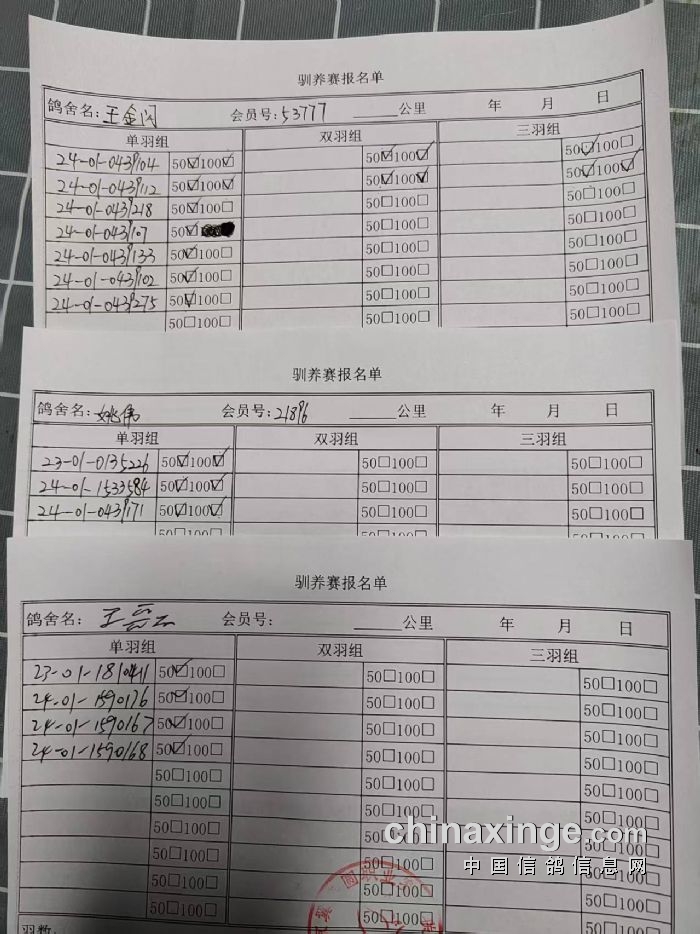 驯养赛报名单
鸽舍名：王金闪 会员号：53777 ____公里 年 月 日
单羽组 双羽组 三羽组
24-01-0439104 50☑100☑ 50☑100☑ 50☑100☐
24-01-0439112 50☑100☑ 50☑100☑ 50☑100☑
24-01-0439218 50☑100☐ 50☐100☐ 50☐100☐
24-01-0439107 50☑ 50☐100☐ 50☐100☐
24-01-0439133 50☑100☐ 50☐100☐ 50☐100☐
24-01-0439102 50☑100☐ 50☐100☐ 50☐100☐
24-01-0439275 50☑100☐ 50☐100☐ 50☐100☐
50☐100☐ 50☐100☐ 50☐100☐
驯养赛报名单
鸽舍名：姚伟 会员号：21896 ____公里 年 月 日
单羽组 双羽组 三羽组
23-01-0135226 50☑100☑ 50☐100☐ 50☐100☐
24-01-1533584 50☑100☑ 50☐100☐ 50☐100☐
24-01-0439171 50☑100☑ 50☐100☐ 50☐100☐
驯养赛报名单
鸽舍名：王 会员号： ____公里 年 月 日
单羽组 双羽组 三羽组
23-01-1810411 50☑100☐ 50☐100☐ 50☐100☐
24-01-1590176 50☑100☐ 50☐100☐ 50☐100☐
24-01-1590167 50☑100☐ 50☐100☐ 50☐100☐
24-01-1590168 50☑100☐ 50☐100☐ 50☐100☐
50☐100☐ 50☐100☐ 50☐100☐
50☐100☐ 50☐100☐ 50☐100☐
50☐100☐ 50☐100☐ 50☐100☐
50☐100☐ 50☐100☐ 50☐100☐
50☐100☐ 50☐100☐ 50☐100☐
50☐100☐ 50☐100☐ 50☐100☐
羽数：
chinaxinge.com
中国信鸽信息网